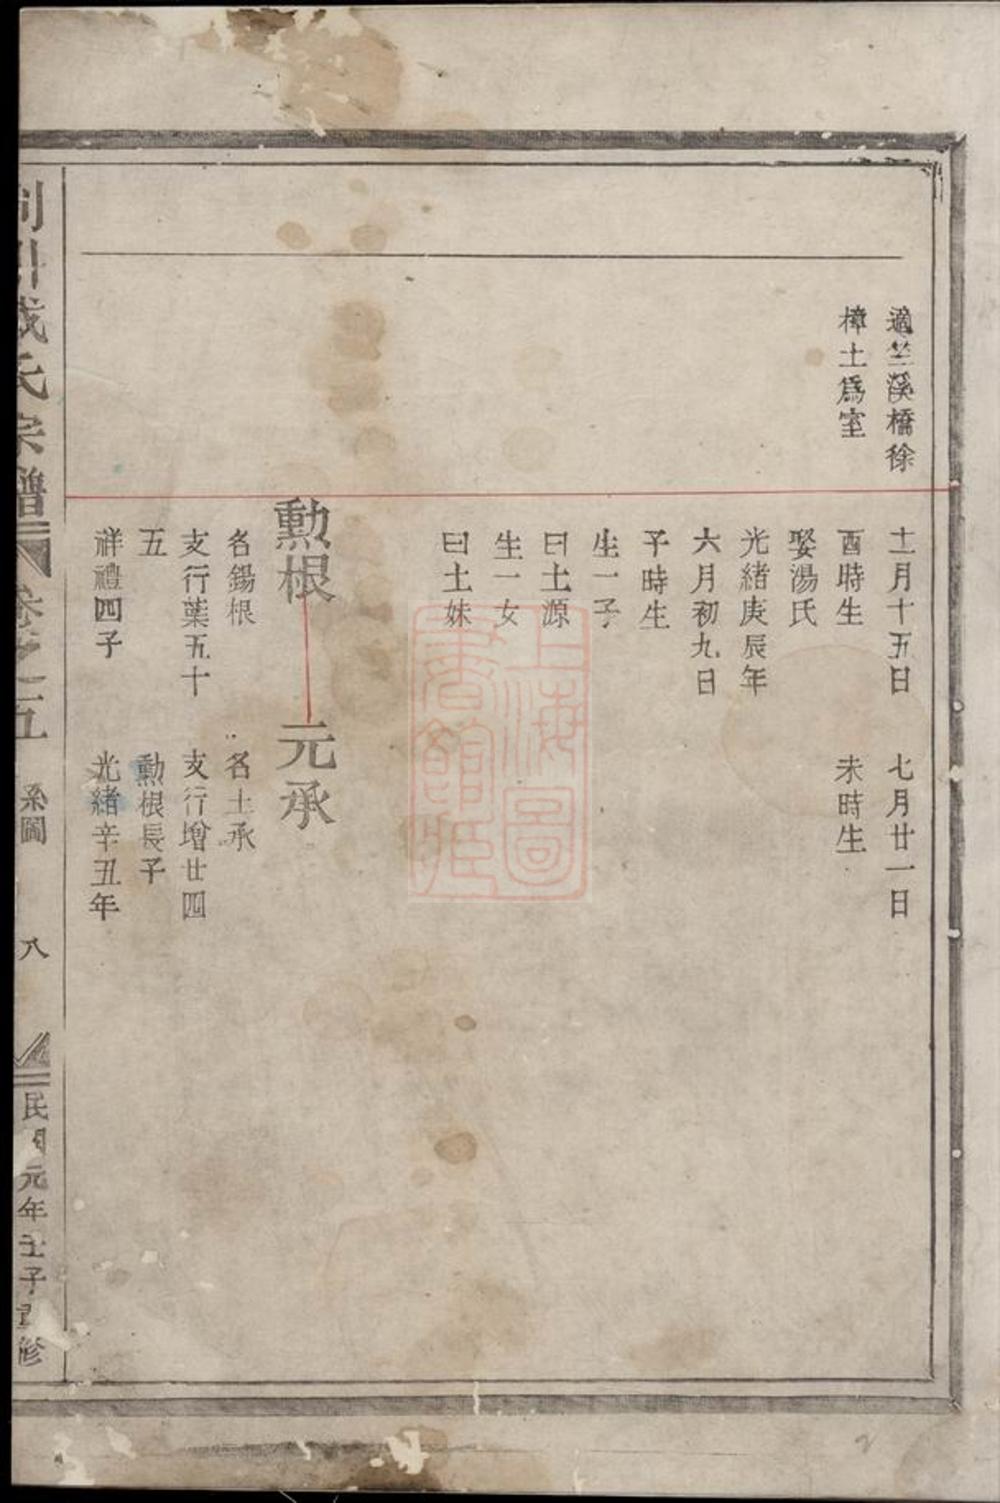 適竺溪橋徐
樟土為室
十一月十五日
酉時生
娶湯氏
光緒庚辰年
六月初九日
子時生
生一子
曰土源
生一女
曰土妹
七月廿一日
未時生
勳根
名錫根
支行葉五十
五
祥禮四子
元承
名土承
支行增廿四
勳根長子
光緒辛丑年
氏宗譜
卷之五
系圖
八
民國元年壬子重修
上海圖
書館藏